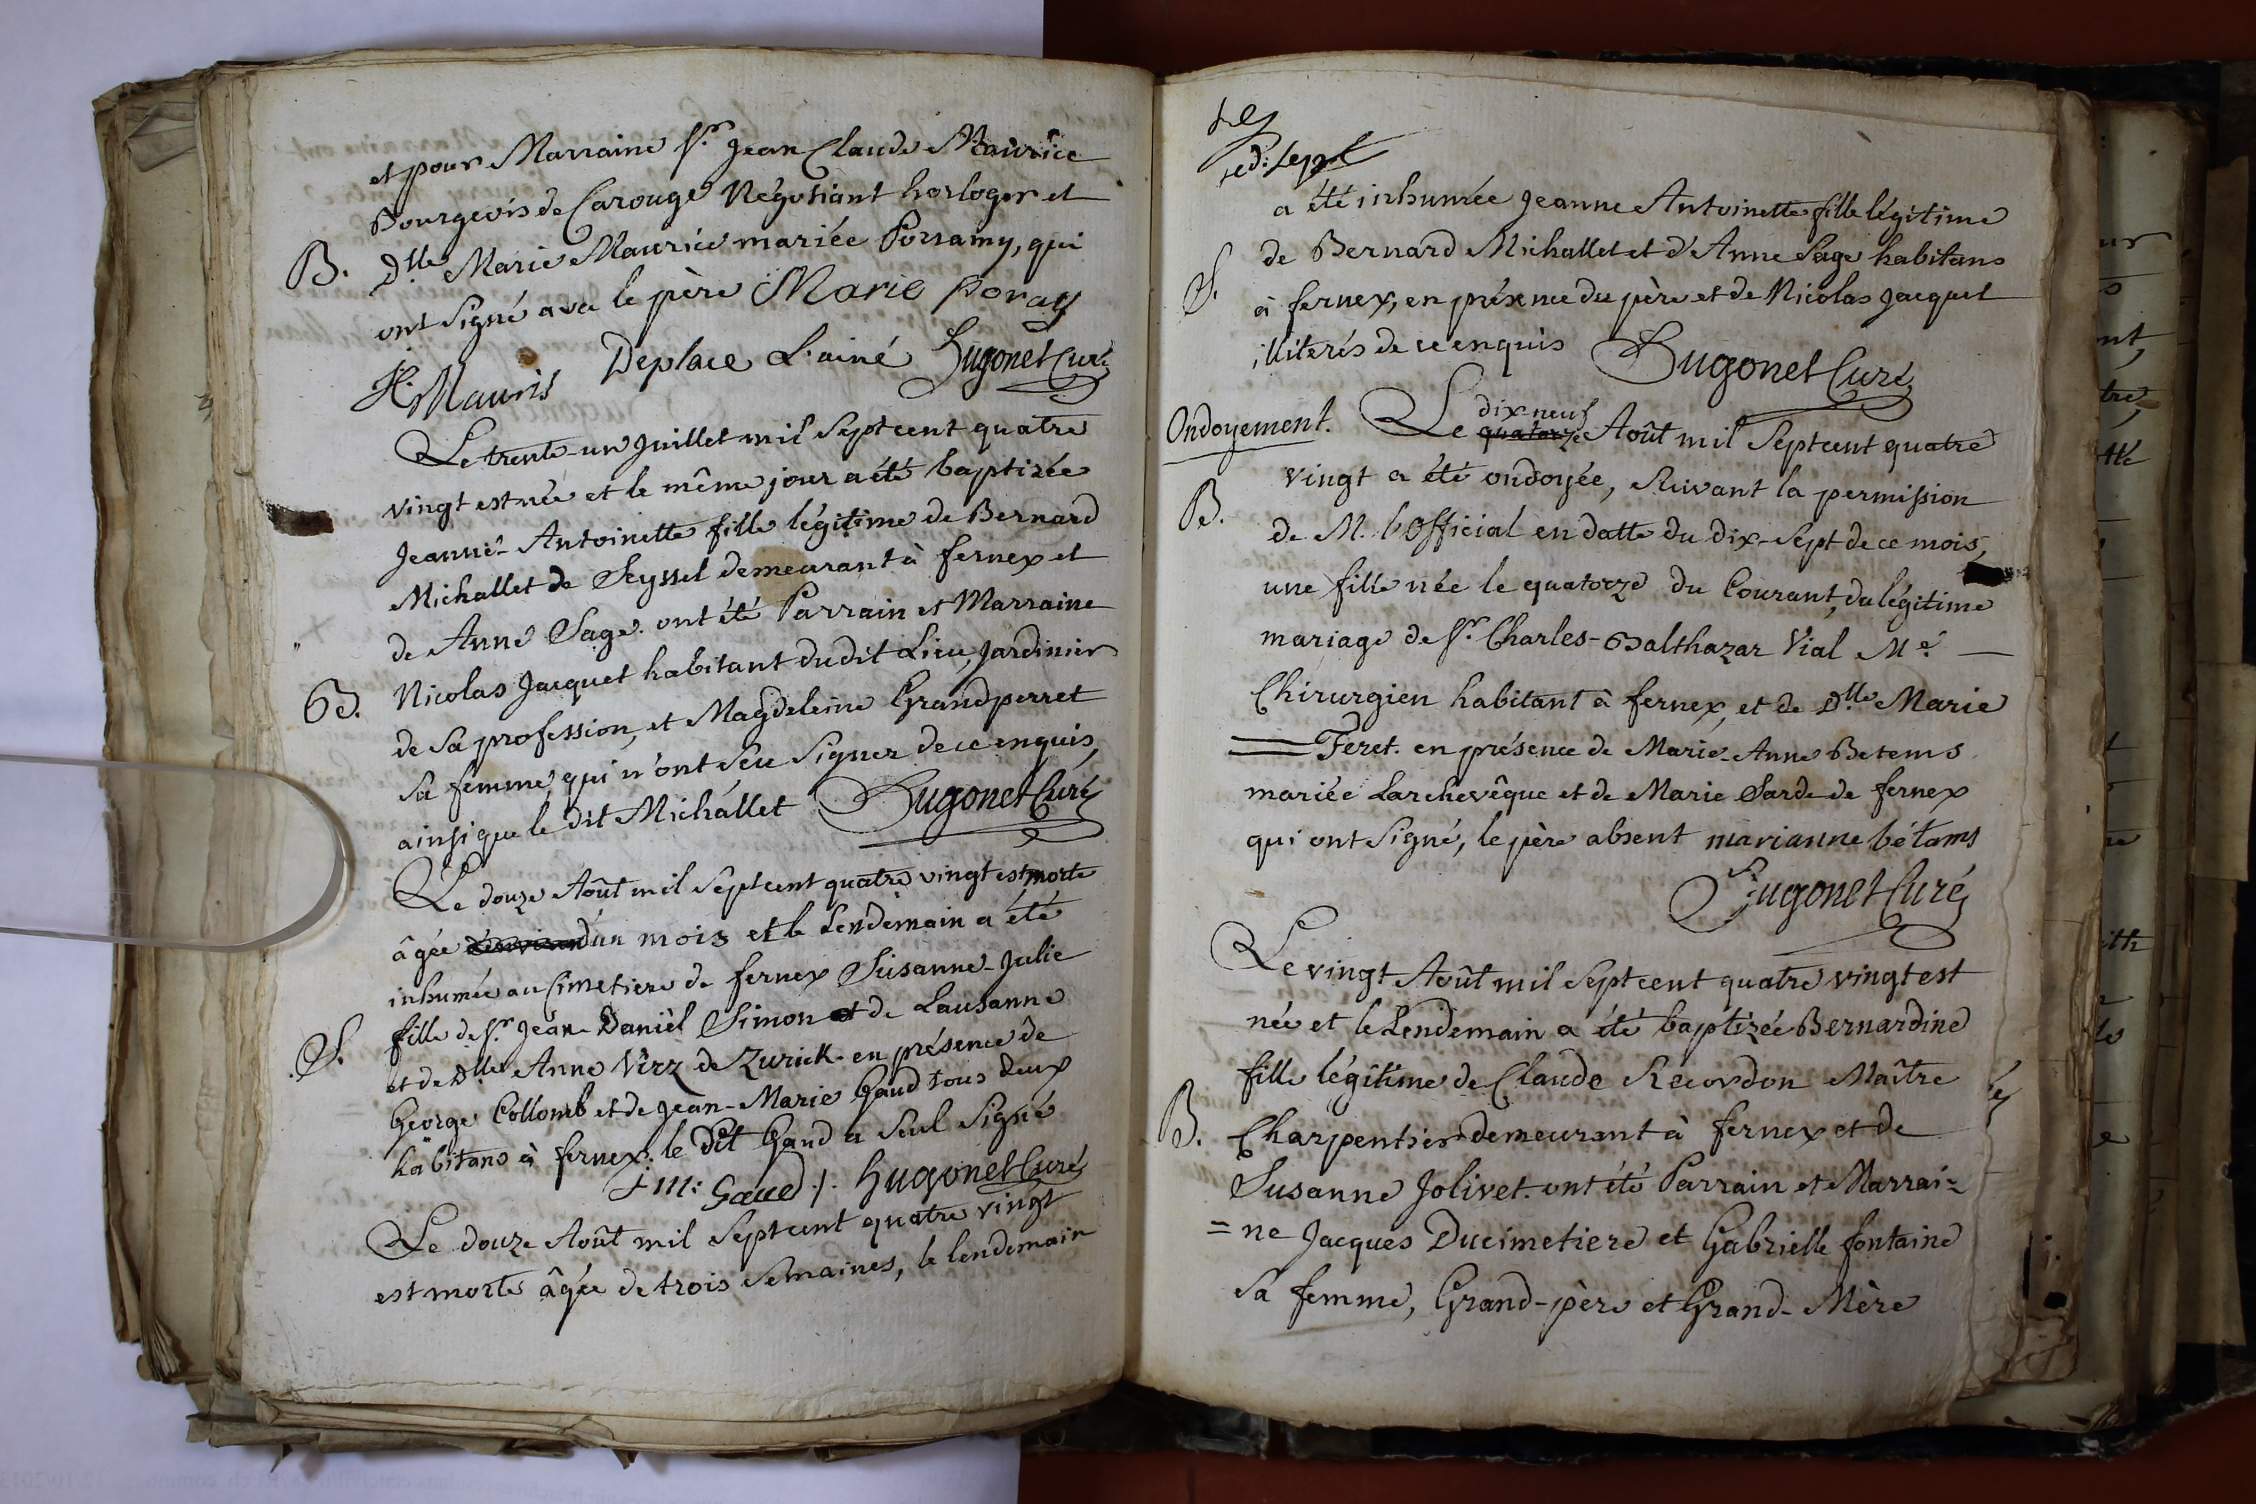 et pour Marraine Sr. Jean Claude Maurice
Bourgeois de Carouge Négotiant horloger et
B. Dlle Marie Maurice mariée Porramy, qui
ont signé avec le père Marie Poray
Mauris Deplace L'ainé Hugonet Curé
Le trente-un Juillet mil Sept cent quatre
vingt est née et le même jour a été baptizée
Jeanne-Antoinette fille légitime de Bernard
Michallet de Seyssel demeurant à fernex et
de Anne Sage. ont été Parrain et Marraine
B. Nicolas Jacquet habitant dudit Lieu, Jardinier
de sa profession, et Magdeleine Grandperret
sa femme, qui n'ont seu signer de ce enquis,
ainsi que le dit Michallet Hugonet Curé
Le douze Août mil Sept cent quatre vingt est morte
âgée d'un mois et le Lendemain a été
inhumée au Cimetiere de fernex Susanne-Julie
S. fille de Sr. Jean-Daniel Simon de Lausanne
et de Dlle Anne Virz de Zurick. en présence de
George Collomb et de Jean-Marie Gaud tous deux
habitans à fernex: le dit Gaud a seul signé
J m: Gaud Hugonet Curé
Le douze Août mil Sept cent quatre vingt
est morte âgée de trois semaines, le lendemain
a été inhumée Jeanne Antoinette fille légitime
de Bernard Michallet et d'Anne Sage habitans
S. à fernex, en présence du père et de Nicolas Jacquet
illiterés de ce enquis Hugonet Curé
Ondoyement. Le quatorze dix neuf Août mil Sept cent quatre
vingt a été ondoyée, suivant la permission
B. de M. l'Official en datte du dix-sept de ce mois,
une fille née le quatorze du Courant, du légitime
mariage de Sr. Charles-Balthazar Vial Me.
Chirurgien habitant à fernex, et de Dlle Marie
Feret. en présence de Marie-Anne Betems
mariée Larchevêque et de Marie Sarde de fernex
qui ont signé, le père absent marianne bétams
Hugonet Curé
Le vingt Août mil Sept cent quatre vingt est
née et le Lendemain a été baptizée Bernardine
fille légitime de Claude Recordon Maître
B. Charpentier demeurant à fernex et de
Susanne Jolivet. ont été Parrain et Marrai=
=ne Jacques Ducimetiere et Gabrielle fontaine
sa femme, Grand-père et Grand-Mère